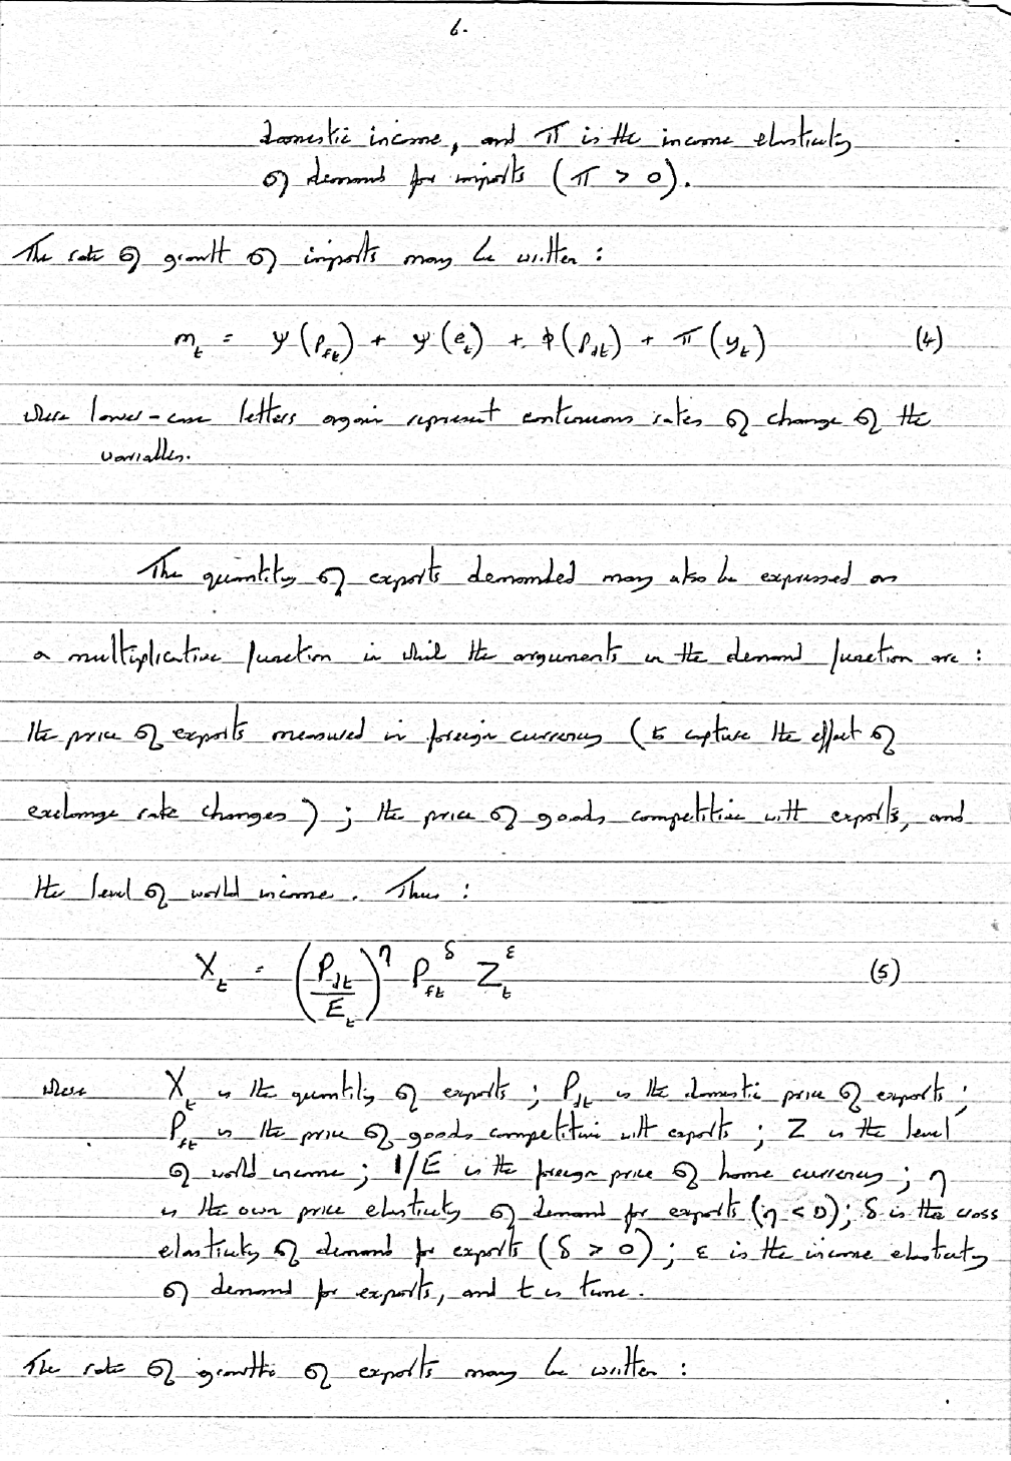 6.
domestic income, and π is the income elasticity
of demand for imports (π > 0).
The rate of growth of imports may be written :
m_t = ψ(p_ft) + ψ(e_t) + φ(p_dt) + π(y_t) (4)
where lower-case letters again represent continuous rates of change of the
variables.
The quantity of exports demanded may also be expressed as
a multiplicative function in which the arguments in the demand function are :
the price of exports measured in foreign currency (to capture the effect of
exchange rate changes) ; the price of goods competitive with exports, and
the level of world income. Thus :
X_t = (P_dt / E_t)^η P_ft^δ Z_t^ε (5)
where X_t is the quantity of exports ; P_dt is the domestic price of exports ;
P_ft is the price of goods competitive with exports ; Z is the level
of world income ; 1/E is the foreign price of home currency ; η
is the own price elasticity of demand for exports (η < 0) ; δ is the cross
elasticity of demand for exports (δ > 0) ; ε is the income elasticity
of demand for exports, and t is time.
The rate of growth of exports may be written :